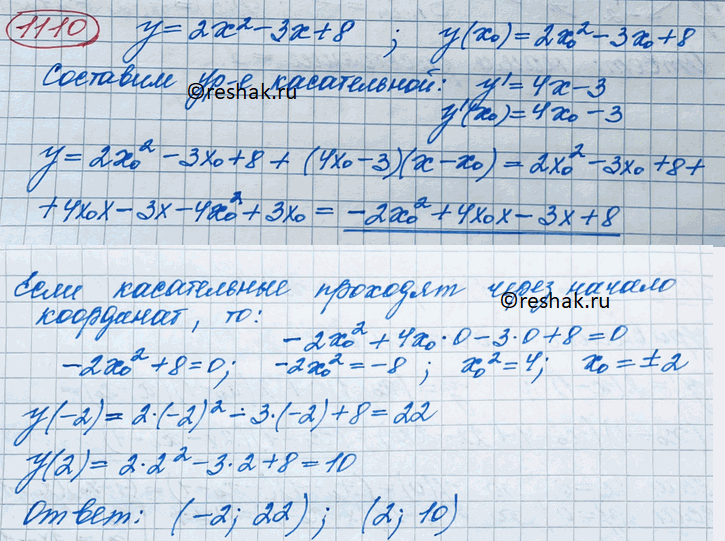 1110 y = 2x² - 3x + 8 ; y(x₀) = 2x₀² - 3x₀ + 8
Составим ур-е касательной: y' = 4x - 3
©reshak.ru
y'(x₀) = 4x₀ - 3
y = 2x₀² - 3x₀ + 8 + (4x₀ - 3)(x - x₀) = 2x₀² - 3x₀ + 8 +
+ 4x₀x - 3x - 4x₀² + 3x₀ = -2x₀² + 4x₀x - 3x + 8
Если касательные проходят через начало
©reshak.ru
координат, то:
-2x₀² + 4x₀·0 - 3·0 + 8 = 0
-2x₀² + 8 = 0; -2x₀² = -8 ; x₀² = 4; x₀ = ±2
y(-2) = 2·(-2)² - 3·(-2) + 8 = 22
y(2) = 2·2² - 3·2 + 8 = 10
Ответ: (-2; 22) ; (2; 10)